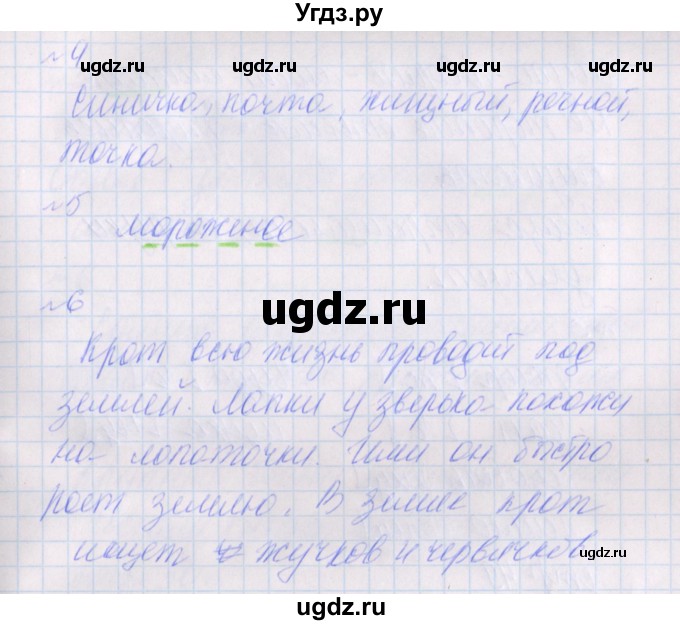 Угдз.ру
№4
ugdz.ru ugdz.ru ugdz.ru
Синичка, почта, хищный, речной,
точка.
№5
мороженое
№6
ugdz.ru
Крот всю жизнь проводит под
землей. Лапки у зверька похожи
на лопаточки. Ими он быстро
роет землю. В земле крот
ищет жучков и червячков
ugdz.ru
ugdz.ru